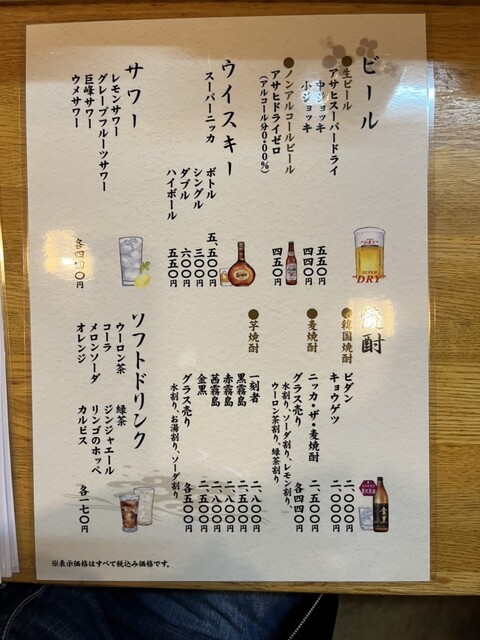 ビール
●生ビール
アサヒスーパードライ
中ジョッキ 五五〇円
小ジョッキ 四四〇円
●ノンアルコールビール
アサヒドライゼロ 四五〇円
(アルコール分0.00%)
ウイスキー
スーパーニッカ
ボトル 五、五〇〇円
シングル 三〇〇円
ダブル 六〇〇円
ハイボール 五五〇円
サワー
レモンサワー
グレープフルーツサワー
巨峰サワー
ウメサワー
各四四〇円
焼酎
●韓国焼酎
ビダン 二、〇〇〇円
キョウゲツ 二、〇〇〇円
●麦焼酎
ニッカ・ザ・麦焼酎 二、五〇〇円
グラス売り 各四四〇円
水割り、ソーダ割り、レモン割り、
ウーロン茶割り、緑茶割り
●芋焼酎
一刻者 二、八〇〇円
黒霧島 二、五〇〇円
赤霧島 二、八〇〇円
茜霧島 二、八〇〇円
金黒 二、五〇〇円
グラス売り 各五〇〇円
水割り、お湯割り、ソーダ割り
ソフトドリンク
ウーロン茶
コーラ
メロンソーダ
オレンジ
緑茶
ジンジャエール
リンゴのホッペ
カルピス
各一七〇円
DRY
SUPER
"DRY"
※表示価格はすべて税込み価格です。